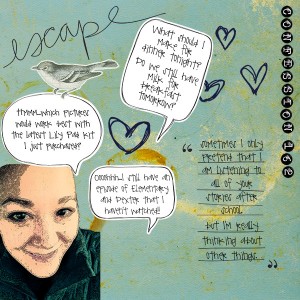 escape
What should I
make for
dinner tonight?
Do we still have
milk for
breakfast
tomorrow?
CONFESSION 162
Hmmm...which pictures
would work best with
the latest Lily Pad kit
I just purchased?
Ooohhh...I still have an
episode of Elementary
and Dexter that I
haven't watched!
"
sometimes I only
pretend that I
am listening to
all of your
stories after
school
but I'm really
thinking about
other things...
"